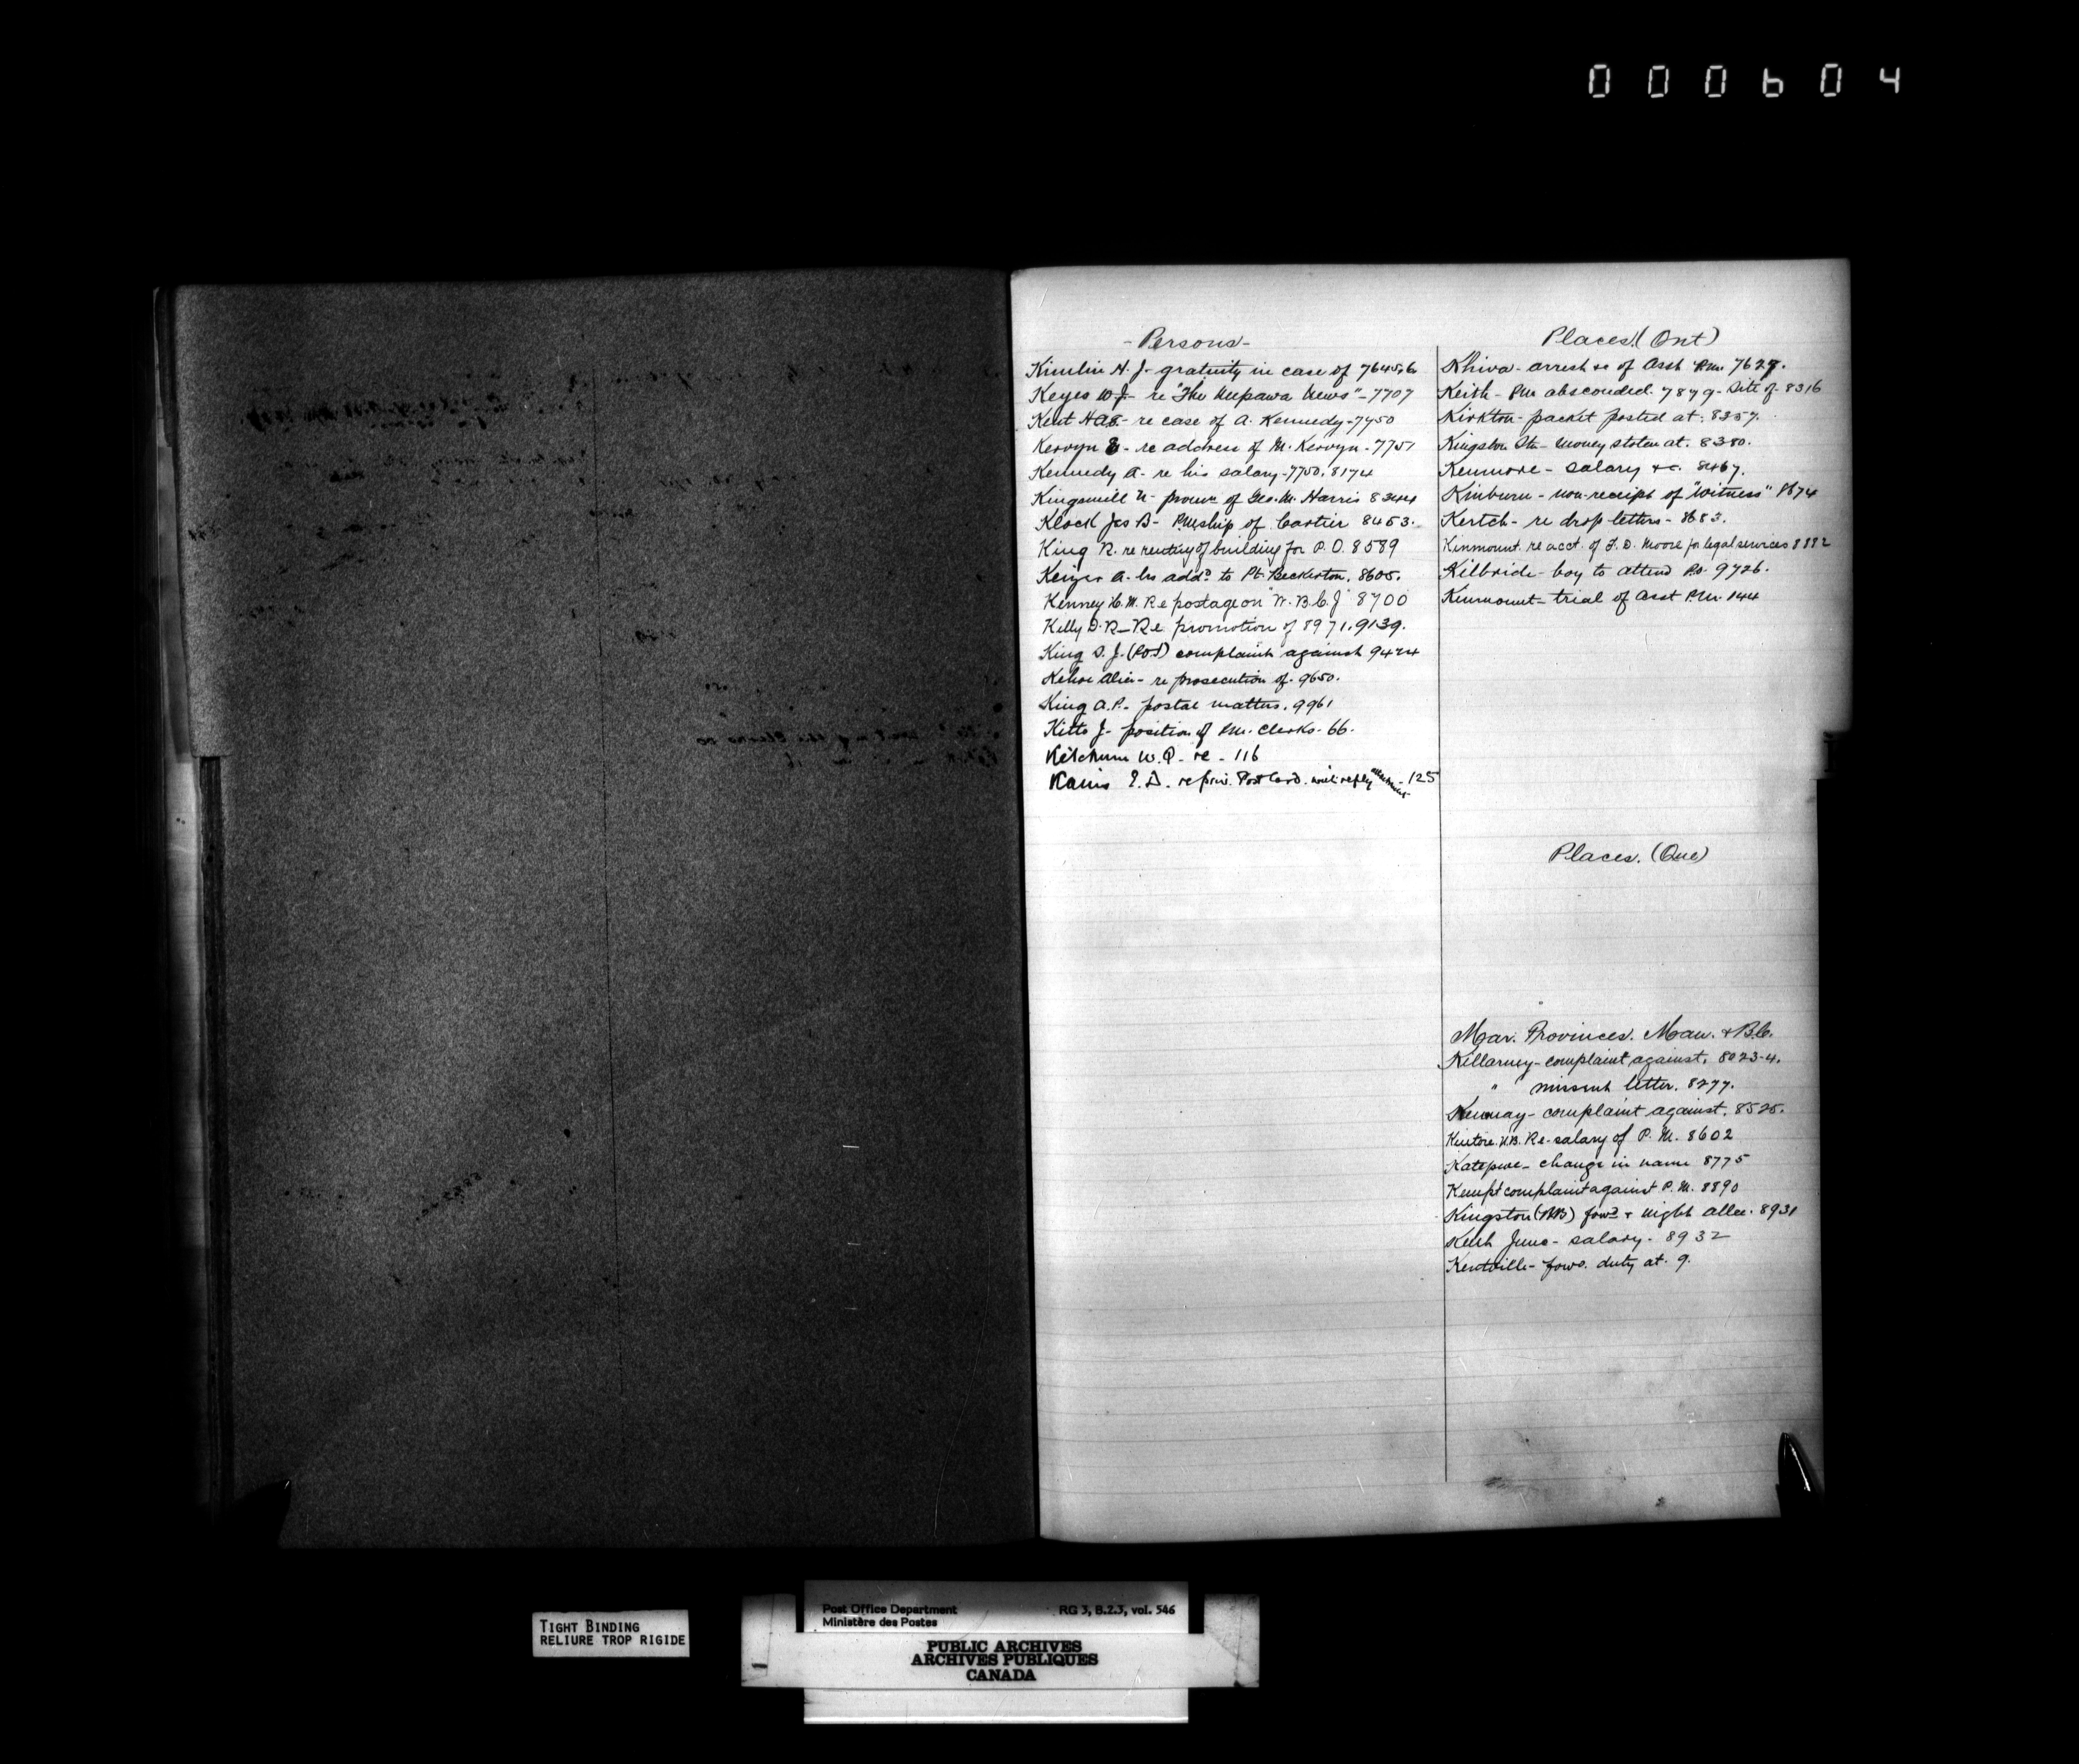 000604
- Persons -
Kimlin H. J. - gratuity in case of 7645,6
Keyes W J - re "The Neepawa News" - 7707
Kent H A S - re case of A. Kennedy - 7750
Kervyn E - re address of M. Kervyn - 7751
Kennedy A - re his salary - 7750, 8174
Kingsmill N - of Geo. M. Harris 8344
Klock Jas B - PMship of Cartier 8453.
King R. re renting of building for P.O. 8589
A - hrs addd to Pt. Beckerton. 8605.
Kenney H. M. Re postage on "W. B. C. J" 8700
Kelly D. R - Re promotion of 8971, 9139.
King S. J. (POI) complaint against 9424
Kehoe Alice - re prosecution of - 9650.
King A.P. - postal matters. 9961
Kitto J - position of PM. Clerks - 66.
Ketchum W. Q - re - 116
E. D. re Post Card. with reply attachment - 125
Places. (Ont)
Khiva - arrest &c of Asst PM. 7627.
Keith - PM absconded. 7879 - Site of - 8316
Kirkton - packet posted at. 8357.
Kingston Stn - Money stolen at. 8380.
Kenmore - salary &c. 8467.
Kinburn - non-receipt of "Witness" 8674
Kertch - re drop letters - 8683.
Kinmount. re acct. of F. D. Moore for legal services 8882
Kilbride - boy to attend P.O. 9726.
Kinmount - trial of Asst P.M. 144
Places. (Que)
Mar. Provinces. Man. & B.C.
Killarney - complaint against. 8023-4.
" missent letter. 8277.
Kemnay - complaint against. 8525.
Kintore N.B. Re - salary of P. M. 8602
Katepwe - change in name 8775
Kempt complaint against P. M. 8890
Kingston (NB) fowd & night allce. 8931
Keith Junc - salary - 8932
Kentville - fowd. duty at. 9.
TIGHT BINDING
RELIURE TROP RIGIDE
Post Office Department RG 3, B.2.3, vol. 546
Ministère des Postes
PUBLIC ARCHIVES
ARCHIVES PUBLIQUES
CANADA